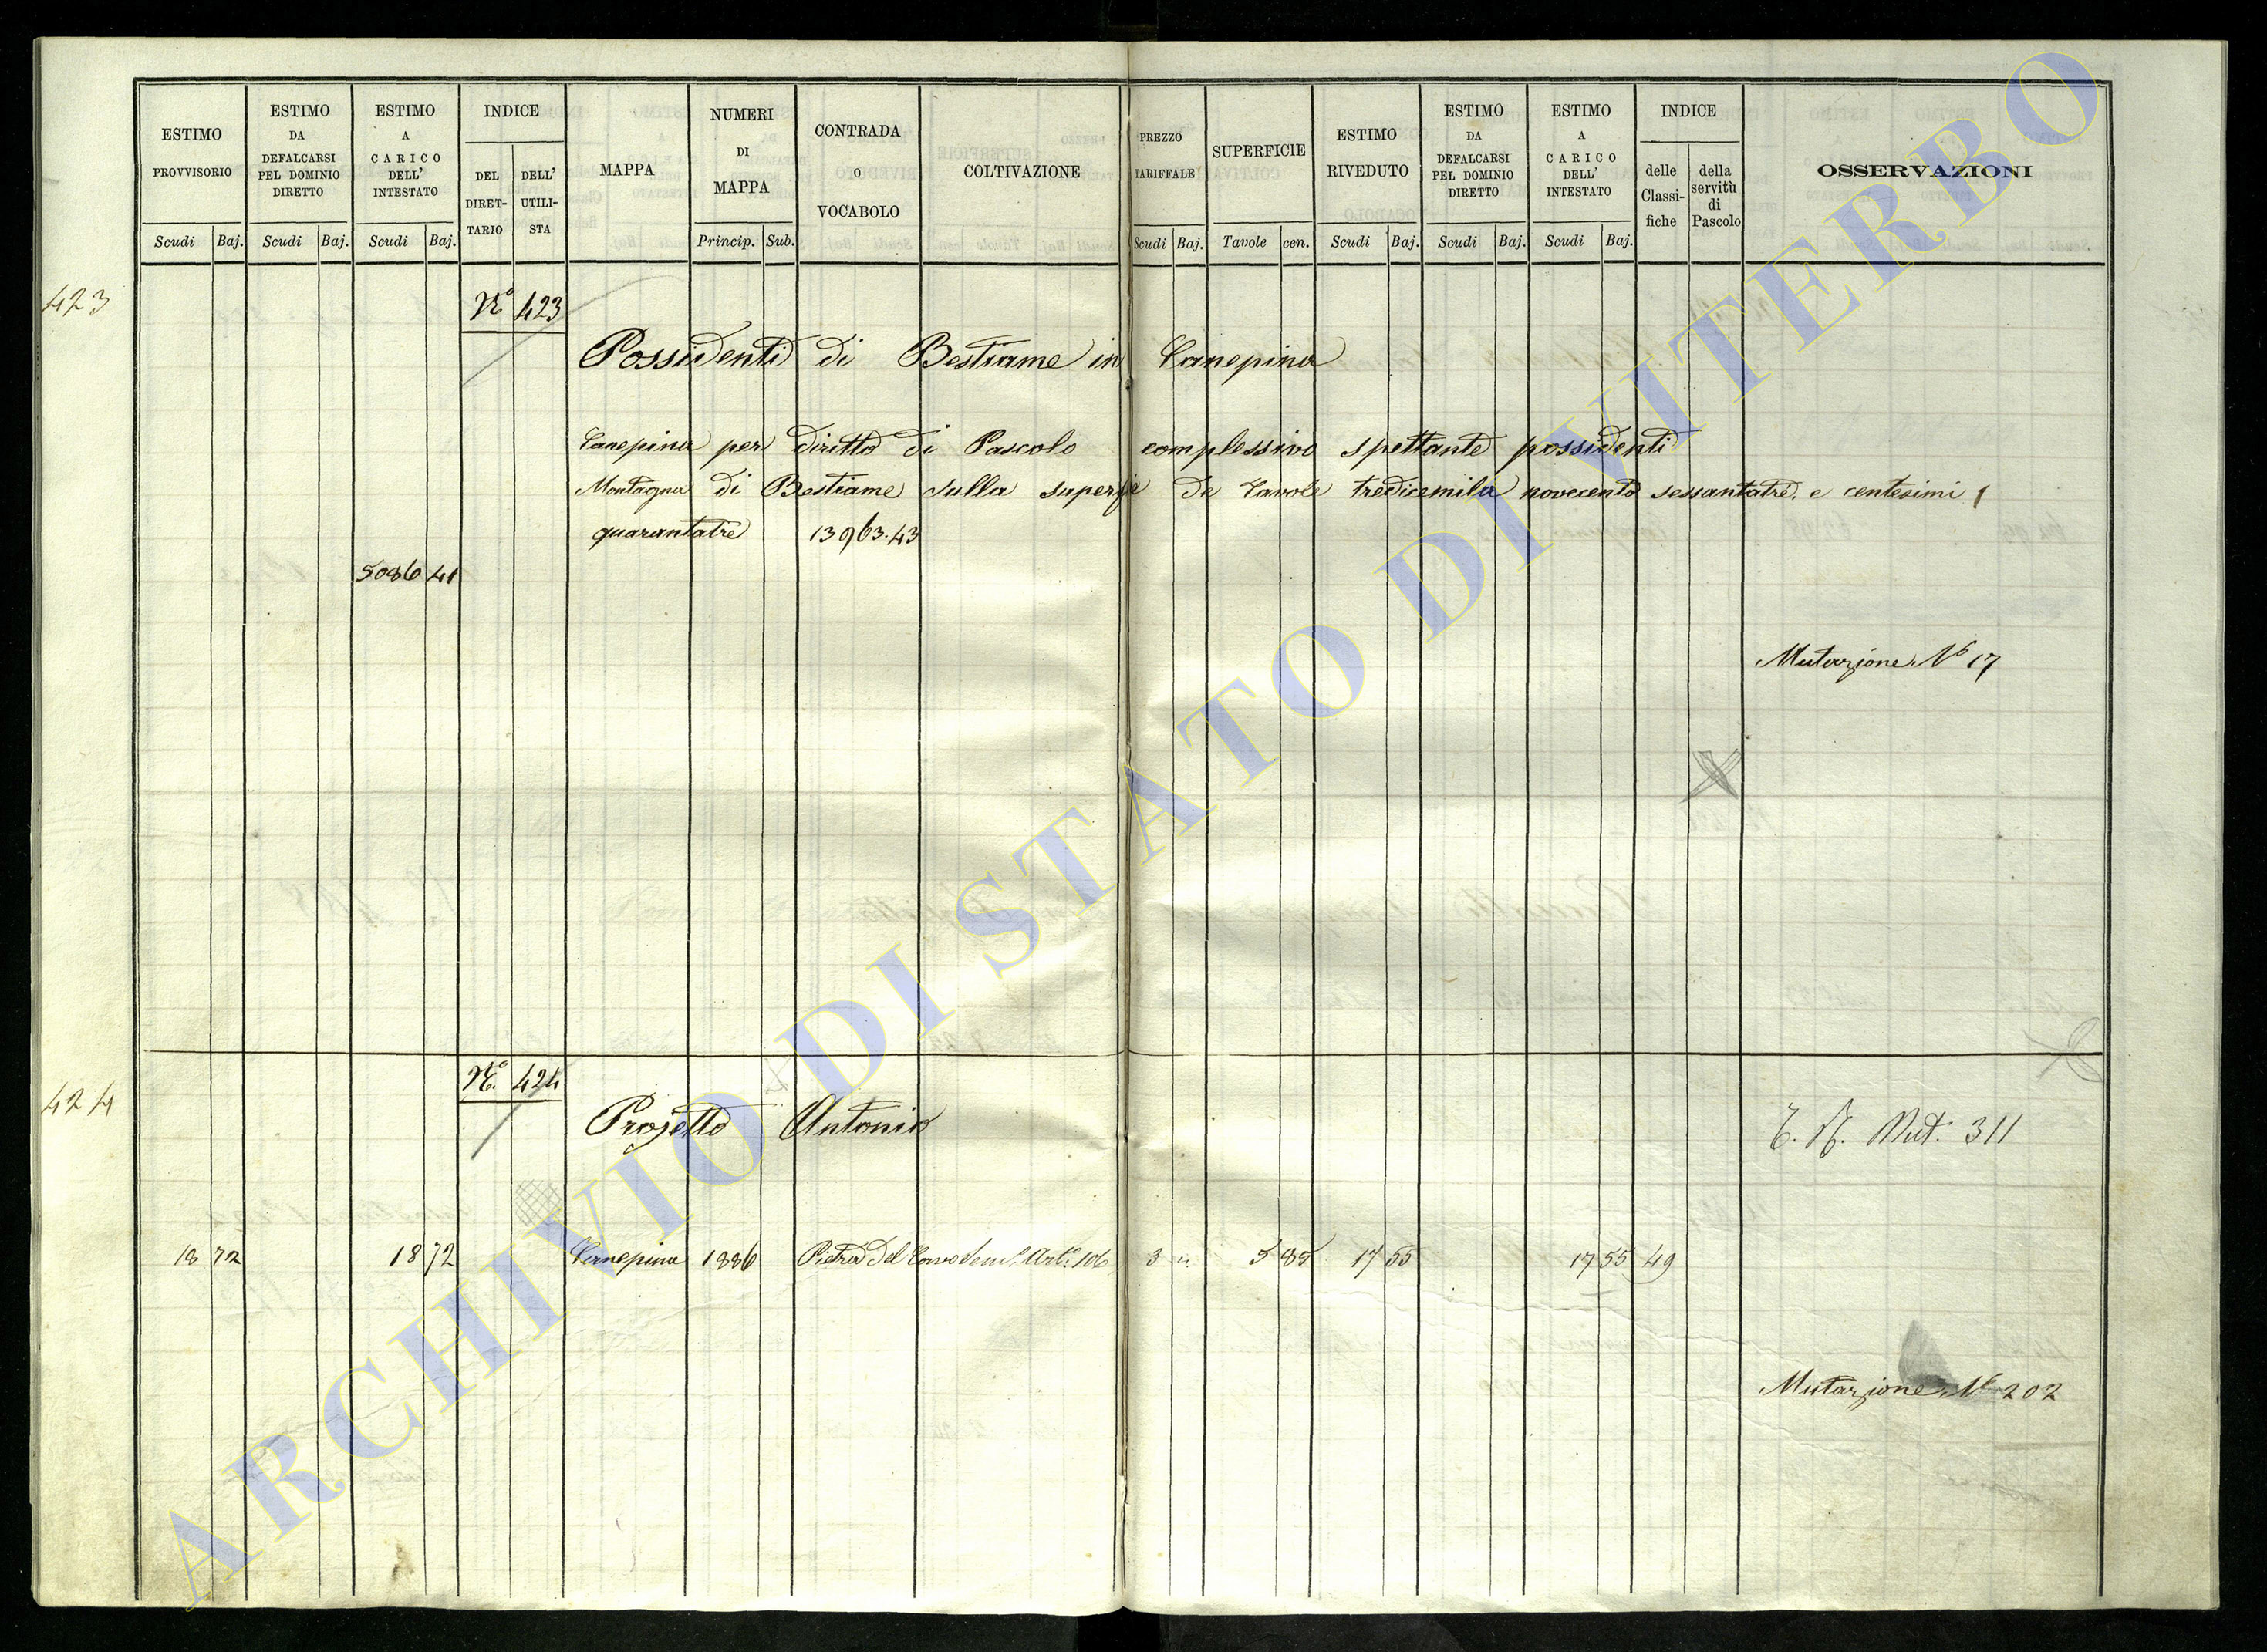 ESTIMO PROVVISORIO
Scudi Baj.
ESTIMO DA DEFALCARSI PEL DOMINIO DIRETTO
Scudi Baj.
ESTIMO A CARICO DELL' INTESTATO
Scudi Baj.
INDICE
DEL DIRET-TARIO
DELL' UTILI-STA
MAPPA
NUMERI DI MAPPA
Princip. Sub.
CONTRADA O VOCABOLO
COLTIVAZIONE
PREZZO TARIFFALE
Scudi Baj.
SUPERFICIE
Tavole cen.
ESTIMO RIVEDUTO
Scudi Baj.
ESTIMO DA DEFALCARSI PEL DOMINIO DIRETTO
Scudi Baj.
ESTIMO A CARICO DELL' INTESTATO
Scudi Baj.
INDICE
delle Classi-fiche
della servitù di Pascolo
OSSERVAZIONI
423
Nº 423
Possidenti di Bestiame in Canepina
Canepina per diritto di Pascolo complessivo spettante possidenti
Montagna di Bestiame sulla superfie de Tavole tredicemila novecento sessantatré, e centesimi
quarantatrè 13963.43
5086 41
Mutazione Nº 17
424
Nº. 424
Projetto Antonio
T. N. Mut. 311
18 72 18 72 Canepina 1886 Pietra del Corvo Sem. Art. 106 3 " 5 85 17 55 17 55 49
Mutazione Nº 202
ARCHIVIO DI STATO DI VITERBO